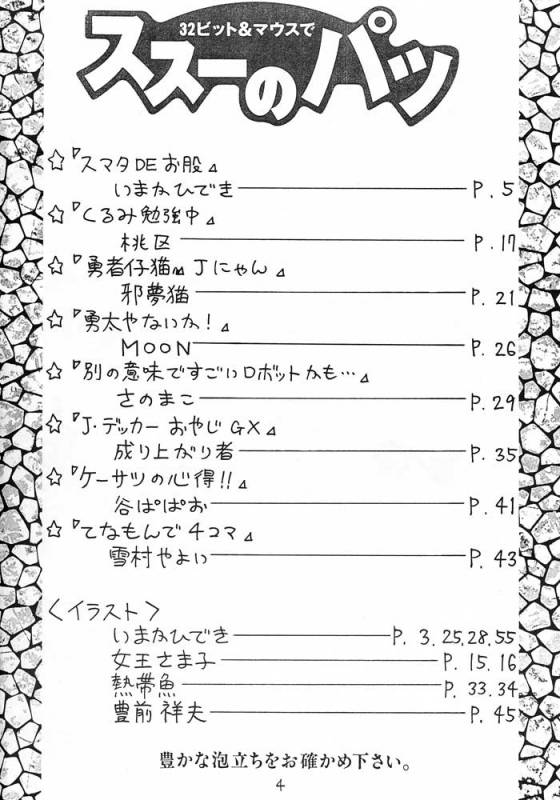 32ビット&マウスで
ススーのパッ
☆『スマタDEお股』
いまかひでき P.5
☆『くるみ勉強中』
桃区 P.17
☆『勇者仔猫 Jにゃん』
邪夢猫 P.21
☆『勇太やないか!』
MOON P.26
☆『別の意味ですごいロボットかも…』
さのまこ P.29
☆『J・デッカー おやじGX』
成り上がり者 P.35
☆『ケーサツの心得!!』
谷ぱぱお P.41
☆『てなもんで4コマ』
雪村やよい P.43
〈イラスト〉
いまかひでき P.3.25.28.55
女王さま子 P.15.16
熱帯魚 P.33.34
豊前祥夫 P.45
豊かな泡立ちをお確かめ下さい。
4